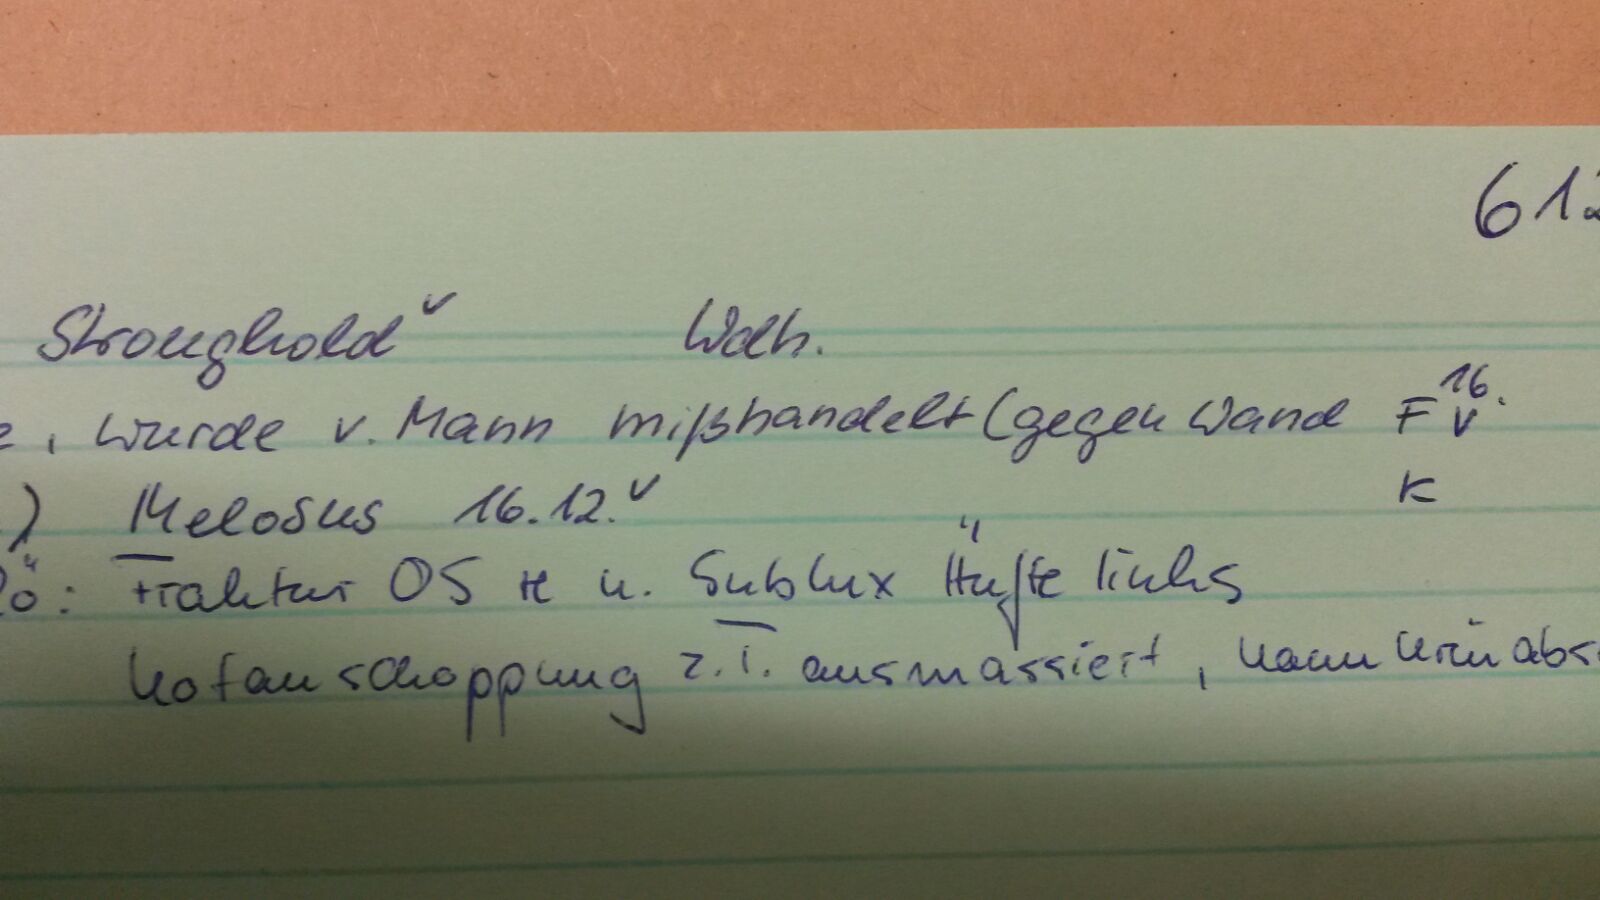 612
Stronghold Wdh.
, wurde v. Mann mißhandelt (gegen Wand F 16. V
) Melosus 16.12. K
Rö: Fraktur OS re u. Sublux Hüfte links
Kotanschoppung z.T. ausmassiert, kann Urin abs